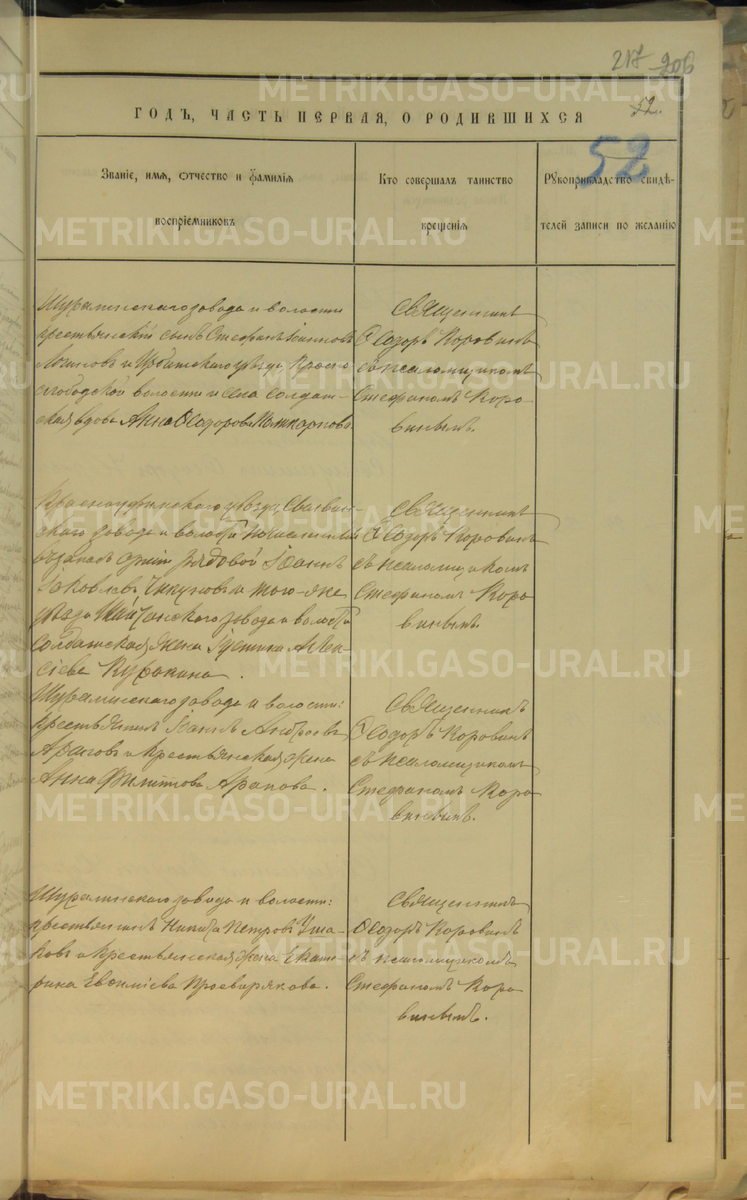 217 206
ГОДЪ, ЧАСТЬ ПЕРВАЯ, О РОДИВШИХСЯ
52.
52
Званіе, имя, отчество и фамилія
воспріемниковъ
Кто совершалъ таинство
крещенія
Рукоприкладство свидѣ-
телей записи по желанію
Шуралинскаго завода и волости
крестьянскій сынъ Стефанъ Іоанновъ
Логиновъ и Ирбитскаго уѣзда, Красно
слободской волости и села солдат-
ская вдова Анна Ѳеодорова
Священникъ
Ѳеодоръ Коровинъ
съ псаломщикомъ
Стефаномъ Коро
винымъ.
Красноуфимскаго уѣзда,
скаго завода и волости
въ запасъ арміи рядовой Іоаннъ
Іаковлевъ и того-же
уѣзда Шайтанскаго завода и волости
солдатская жена Іустина Алек-
сіева Куракина.
Священникъ
Ѳеодоръ Коровинъ
съ псаломщикомъ
Стефаномъ Коро
винымъ.
Шуралинскаго завода и волости:
крестьянинъ Іоаннъ Андреевъ
Араповъ и крестьянская жена
Анна Филиппова Арапова.
Священникъ
Ѳеодоръ Коровинъ
съ псаломщикомъ
Стефаномъ Коро
винымъ.
Шуралинскаго завода и волости:
крестьянинъ Никита Петровъ Уша-
ковъ и крестьянская жена Екате-
рина Евѳиміева Просвирякова.
Священникъ
Ѳеодоръ Коровинъ
съ псаломщикомъ
Стефаномъ Коро
винымъ.
METRIKI.GASO-URAL.RU